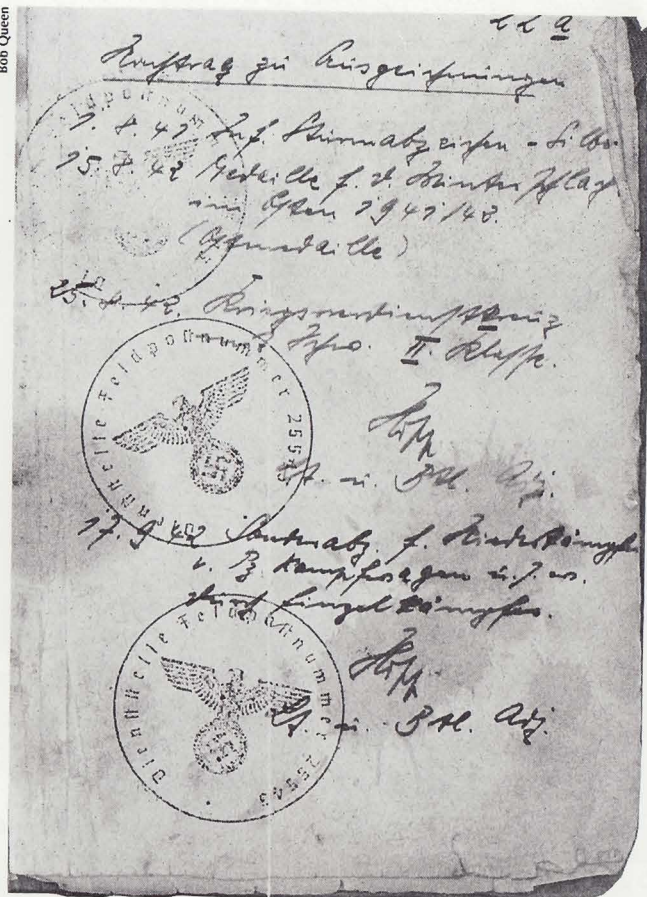 Bob Queen
22 a
Nachtrag zu Auszeichnungen
1. 8. 41 Inf. Sturmabzeichen - Silber
15. 8. 42 Medaille f. d. Winterschlacht
im Osten 1941/42.
(Ostmedaille)
25. 8. 42. Kriegsverdienstkreuz
II. Klasse.
Lt. u. Btl. Adj.
17. 9. 42 Sonderabz. f. Niederkämpfen
v. Pz. Kampfwagen u.s.w.
durch Einzelkämpfer.
Lt. u. Btl. Adj.
Feldpostnummer
Dienststelle Feldpostnummer 25543
Dienststelle Feldpostnummer 25543